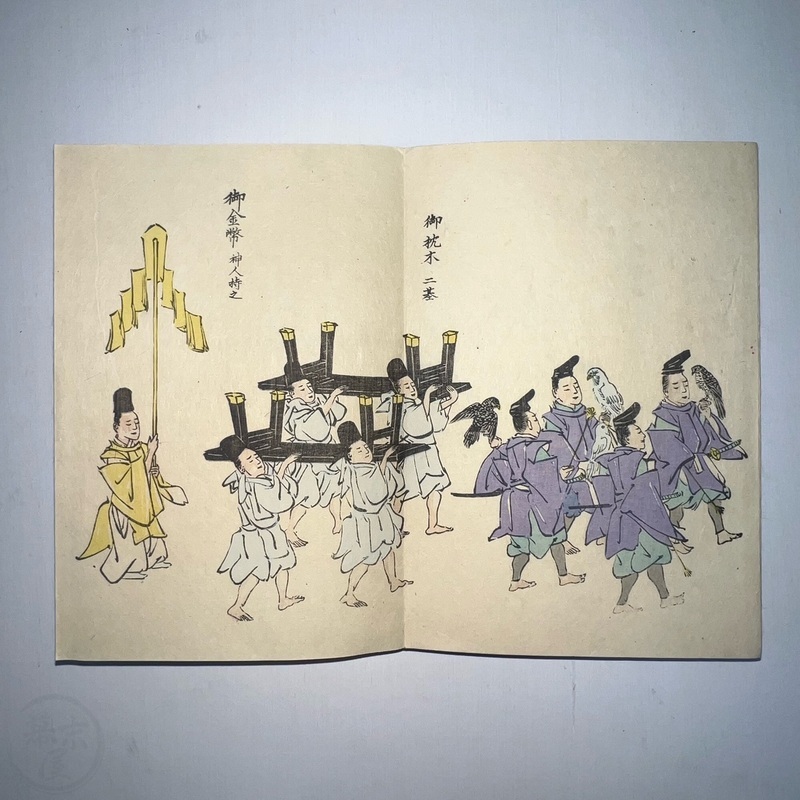 御枕木 二基
御金幣 神人持之